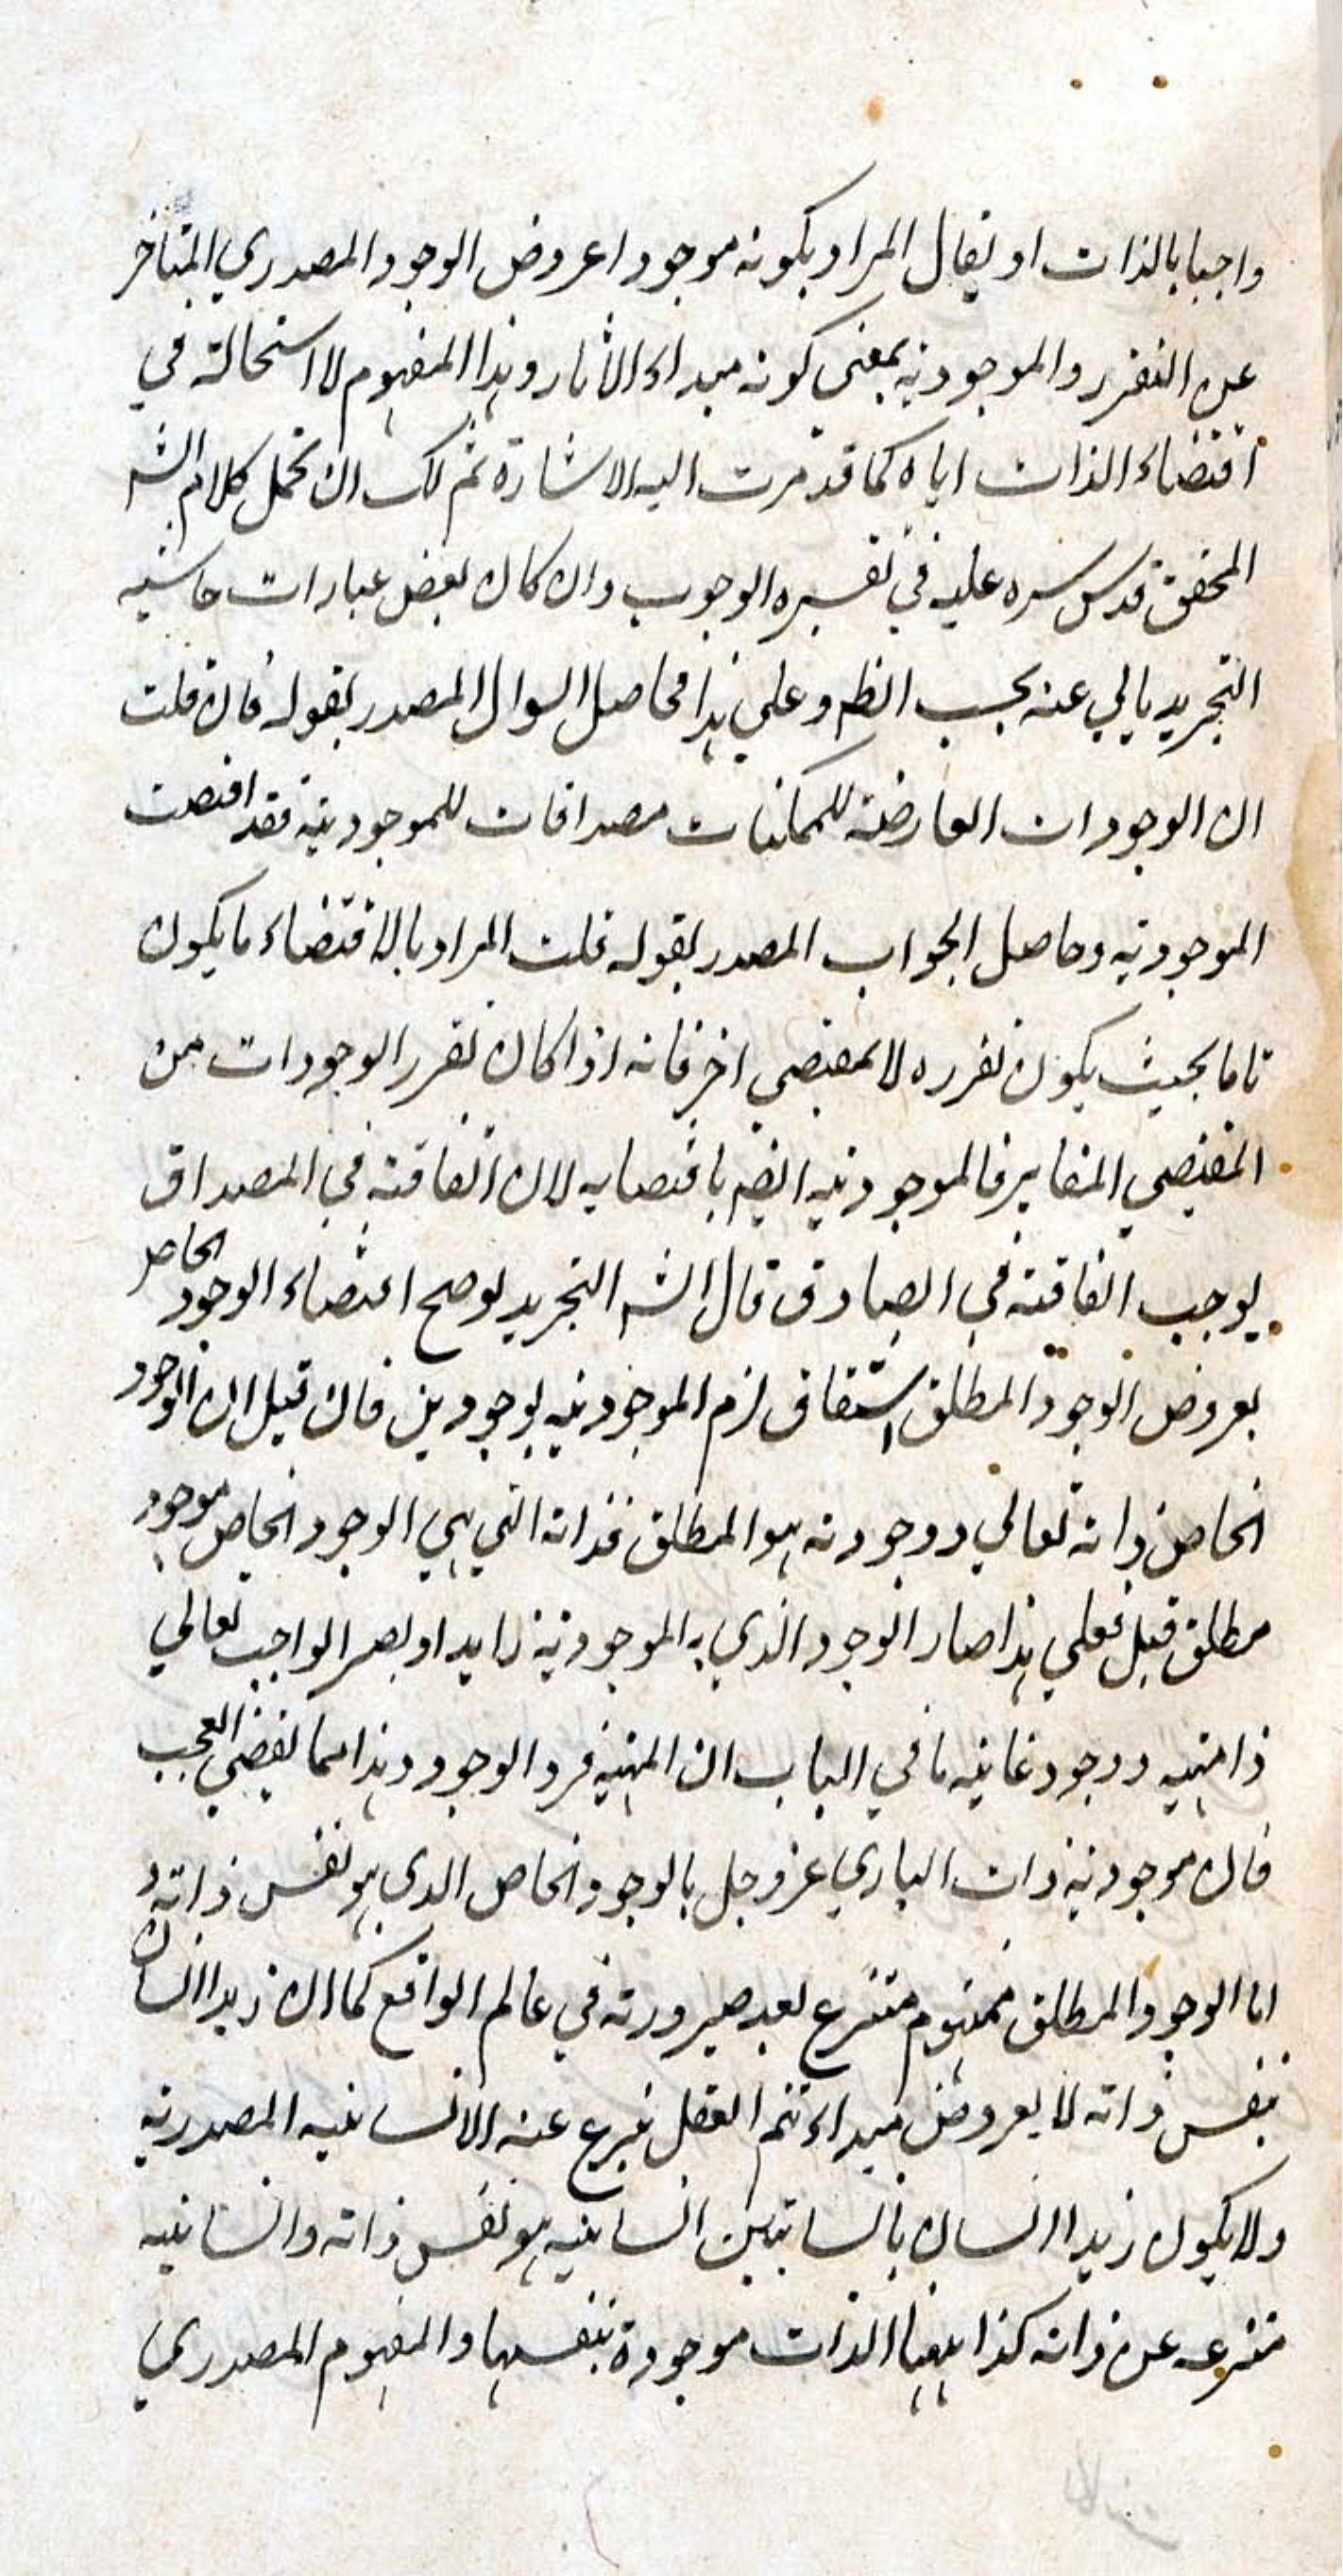 واجبا بالذات او يقال المراد بكونه موجودا عروض الوجود المصدري المتاخر
عن التقرر والموجودية بمعنى كونه مبداء الآثار وهذا المفهوم لا استحالة في
اقتضاء الذات اياه كما قد مرت اليه الاشارة ثم لك ان تحمل كلام الشه
المحقق قدس سره عليه في تفسيره الوجوب وان كان بعض عبارات حاشيه
التجريد يابي عنه بحسب الظم وعلي هذا فحاصل السوال المصدر بقوله فان قلت
ان الوجودات العارضة للممكنات مصداقات للموجودية فقد اقتضت
الموجودية وحاصل الجواب المصدر بقوله قلت المراد بالاقتضاء ما يكون
تاما بحيث يكون تقرره لا لمقتضي اخر فانه اذا كان تقرر الوجودات من
المقتضي المغاير فالموجودية ايضم باقتضايه لان الفاقة في المصداق
يوجب الفاقة في الصادق قال الشه التجريد لو صح اقتضاء الوجود الخاص
بعروض الوجود المطلق اشتقاقا لزم الموجودية بوجودين فان قيل ان الوجود
الخاص ذاته تعالي ووجوده هو المطلق فذاته التي هي الوجود الخاص موجود
مطلق قيل فعلي هذا صار الوجود الذي به الموجودية زايدا وبصر الواجب تعالي
ذا مهية ووجود غايته ما في الباب ان المهية فرد الوجود وهذا مما يقضي العجب
فان موجودية ذات الباري عز وجل بالوجود الخاص الذي هو نفس ذاته و
اما الوجود المطلق فمفهوم منتزع بعد صيرورته في عالم الواقع كما ان زيدا انسان
بنفس ذاته لا بعروض مبداء ثم العقل ينزع عنه الانسانيه المصدريه
ولا يكون زيدا انسان بانسانيتين انسانيه هو نفس ذاته وانسانيه
منتزعه عن ذاته كذا ههنا الذات موجودة بنفسها والمفهوم المصدري